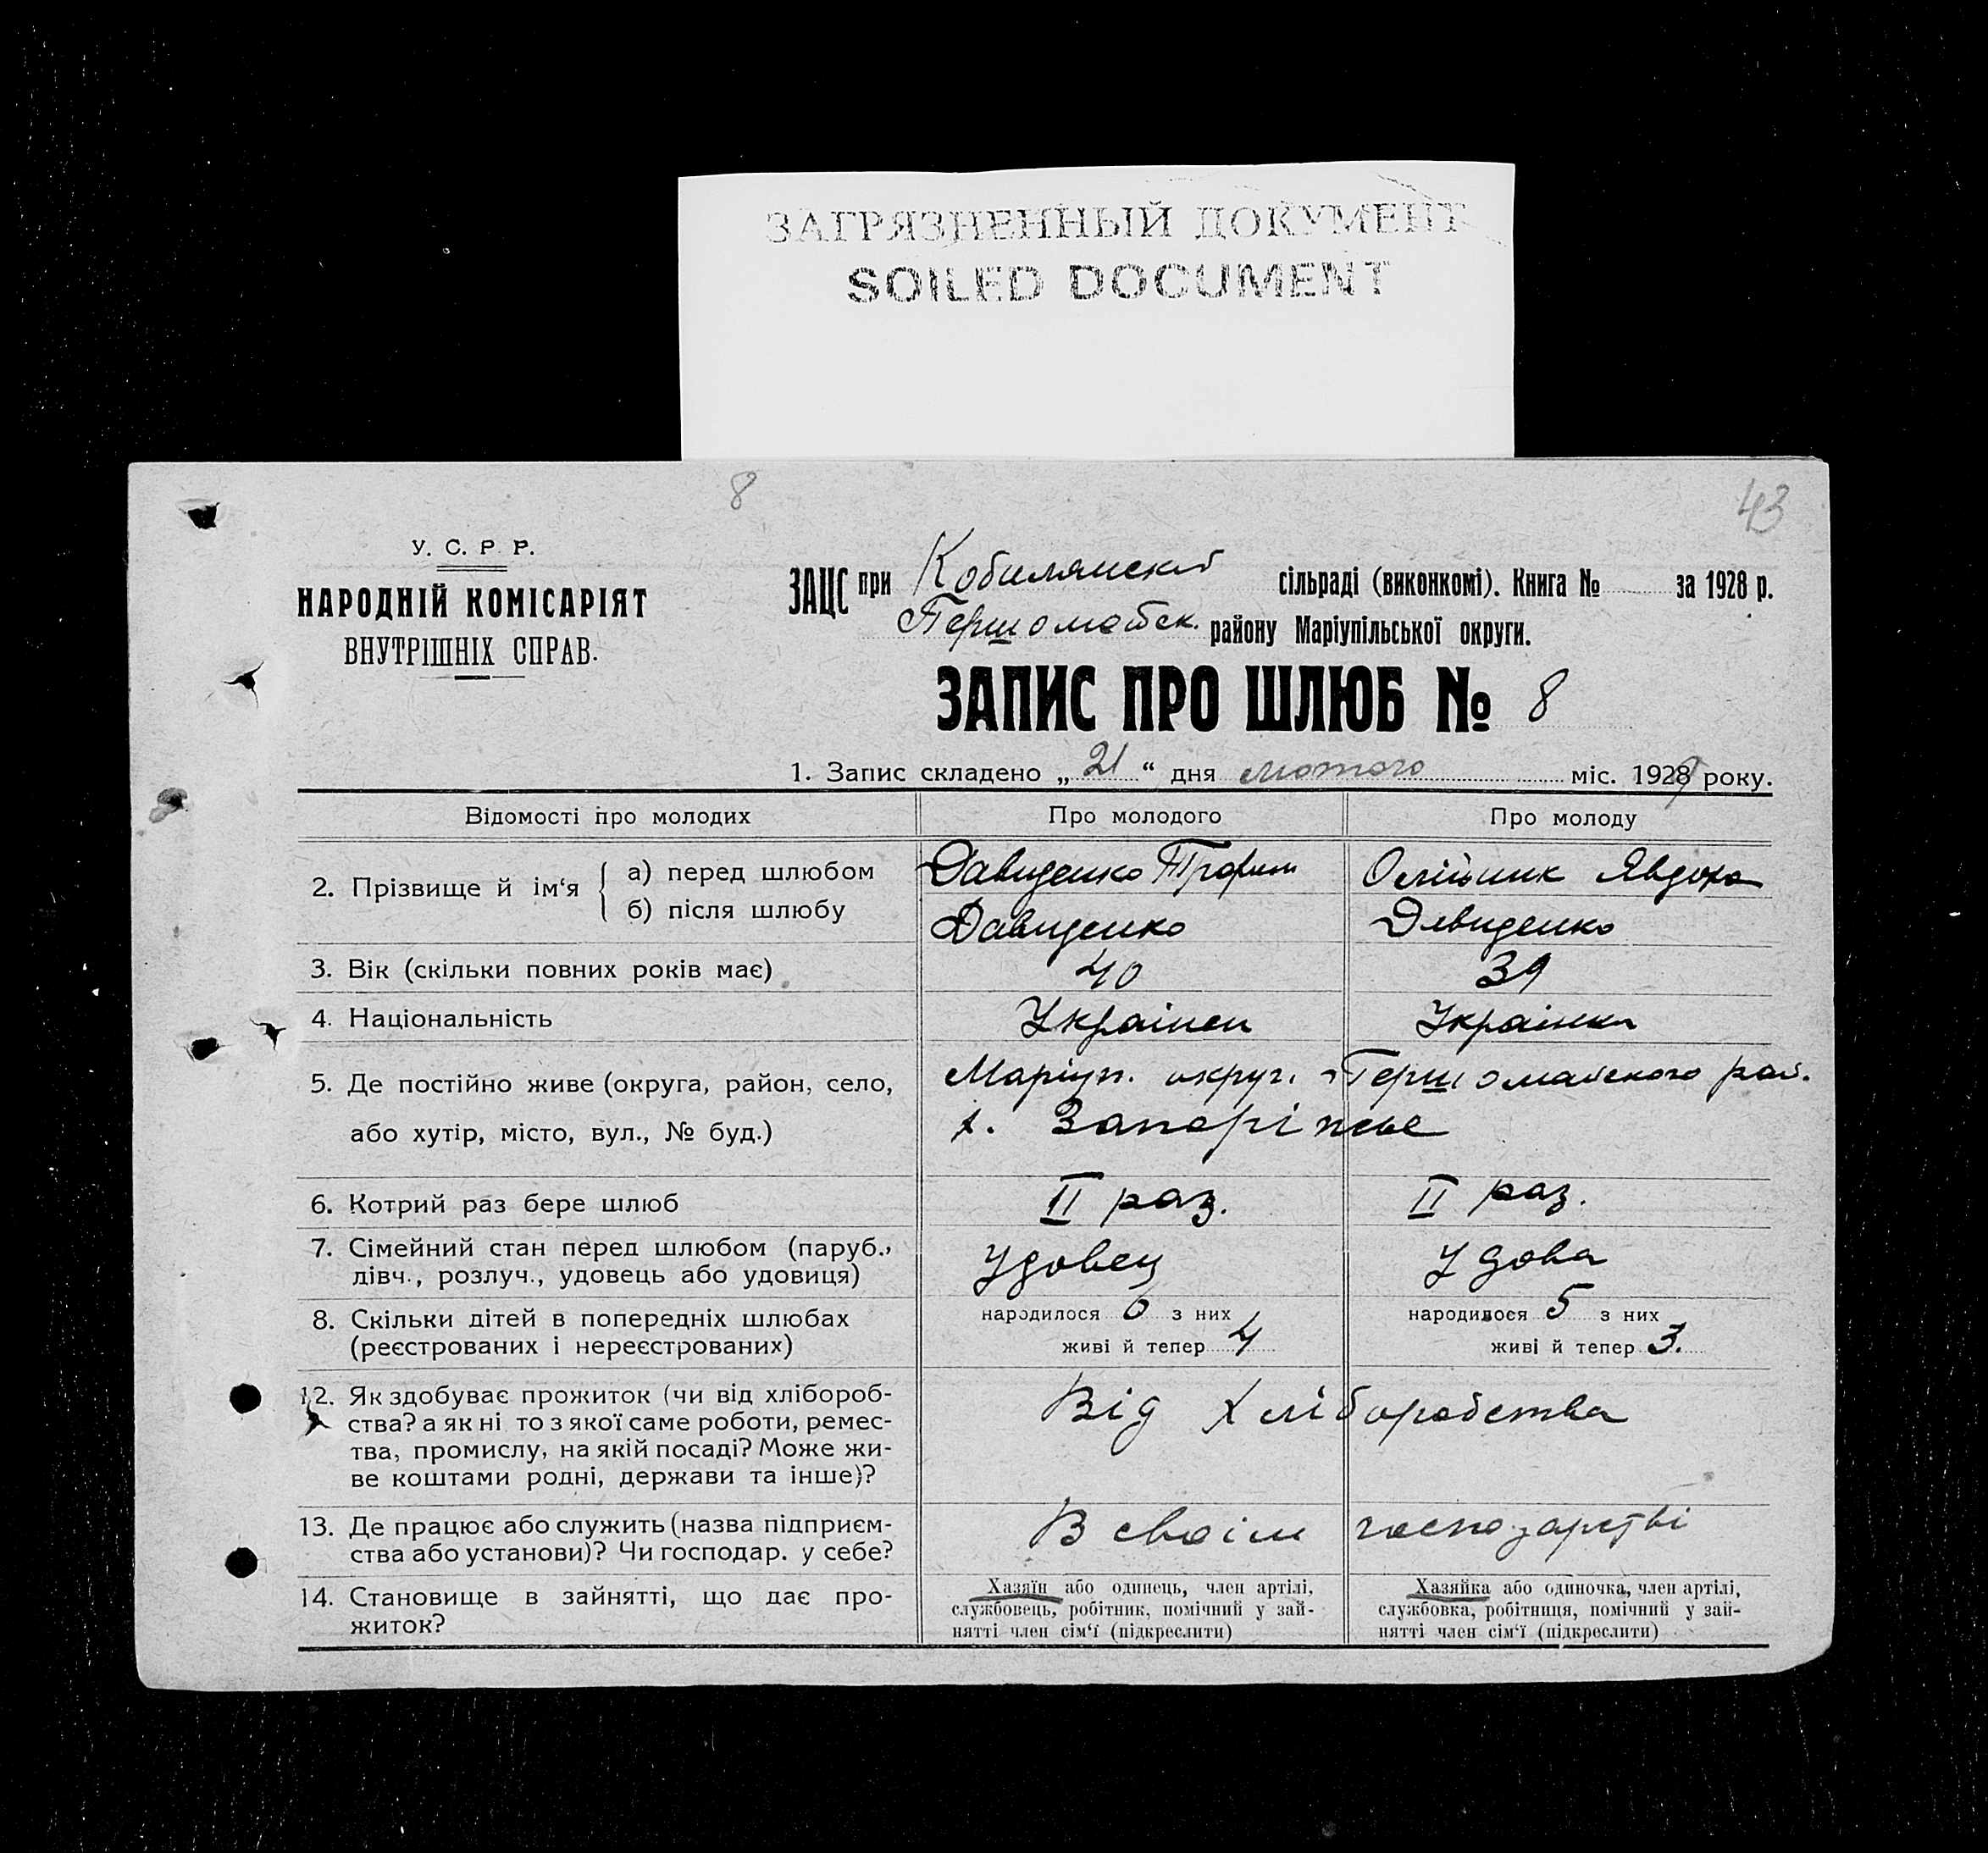 ЗАГРЯЗНЕННЫЙ ДОКУМЕНТ
SOILED DOCUMENT
8
43
У. С. Р. Р.
НАРОДНІЙ КОМІСАРІЯТ
ВНУТРІШНІХ СПРАВ.
ЗАЦС при Кобилянскій сільраді (виконкомі). Книга № за 1928 р.
Першомайск. району Маріупільської округи.
ЗАПИС ПРО ШЛЮБ № 8
1. Запис складено „ 21 “ дня лютого міс. 1929 року.
Відомості про молодих Про молодого Про молоду
2. Прізвище й ім‘я { а) перед шлюбом Давиденко Трофим Олійник Явдоха
б) після шлюбу Давиденко Давиденко
3. Вік (скільки повних років має) 40 39
4. Національність Українец Українка
5. Де постійно живе (округа, район, село, Маріуп. округ. Першомайского рай.
або хутір, місто, вул., № буд.) х. Запоріжье
6. Котрий раз бере шлюб II раз. II раз.
7. Сімейний стан перед шлюбом (паруб., Удовец Удова
дівч., розлуч., удовець або удовиця)
8. Скільки дітей в попередніх шлюбах народилося 6 з них народилося 5 з них
(реєстрованих і нереєстрованих) живі й тепер 4 живі й тепер 3.
12. Як здобуває прожиток (чи від хлібороб- Від Хліборобства
ства? а як ні то з якої саме роботи, ремес-
тва, промислу, на якій посаді? Може жи-
ве коштами родні, держави та інше)?
13. Де працює або служить (назва підприєм- В своім господарстві
ства або установи)? Чи господар. у себе?
14. Становище в зайнятті, що дає про- Хазяїн або одинець, член артілі, Хазяйка або одиночка, член артілі,
житок? службовець, робітник, помічний у зай- службовка, робітниця, помічний у зай-
нятті член сім‘ї (підкреслити) нятті член сім‘ї (підкреслити)